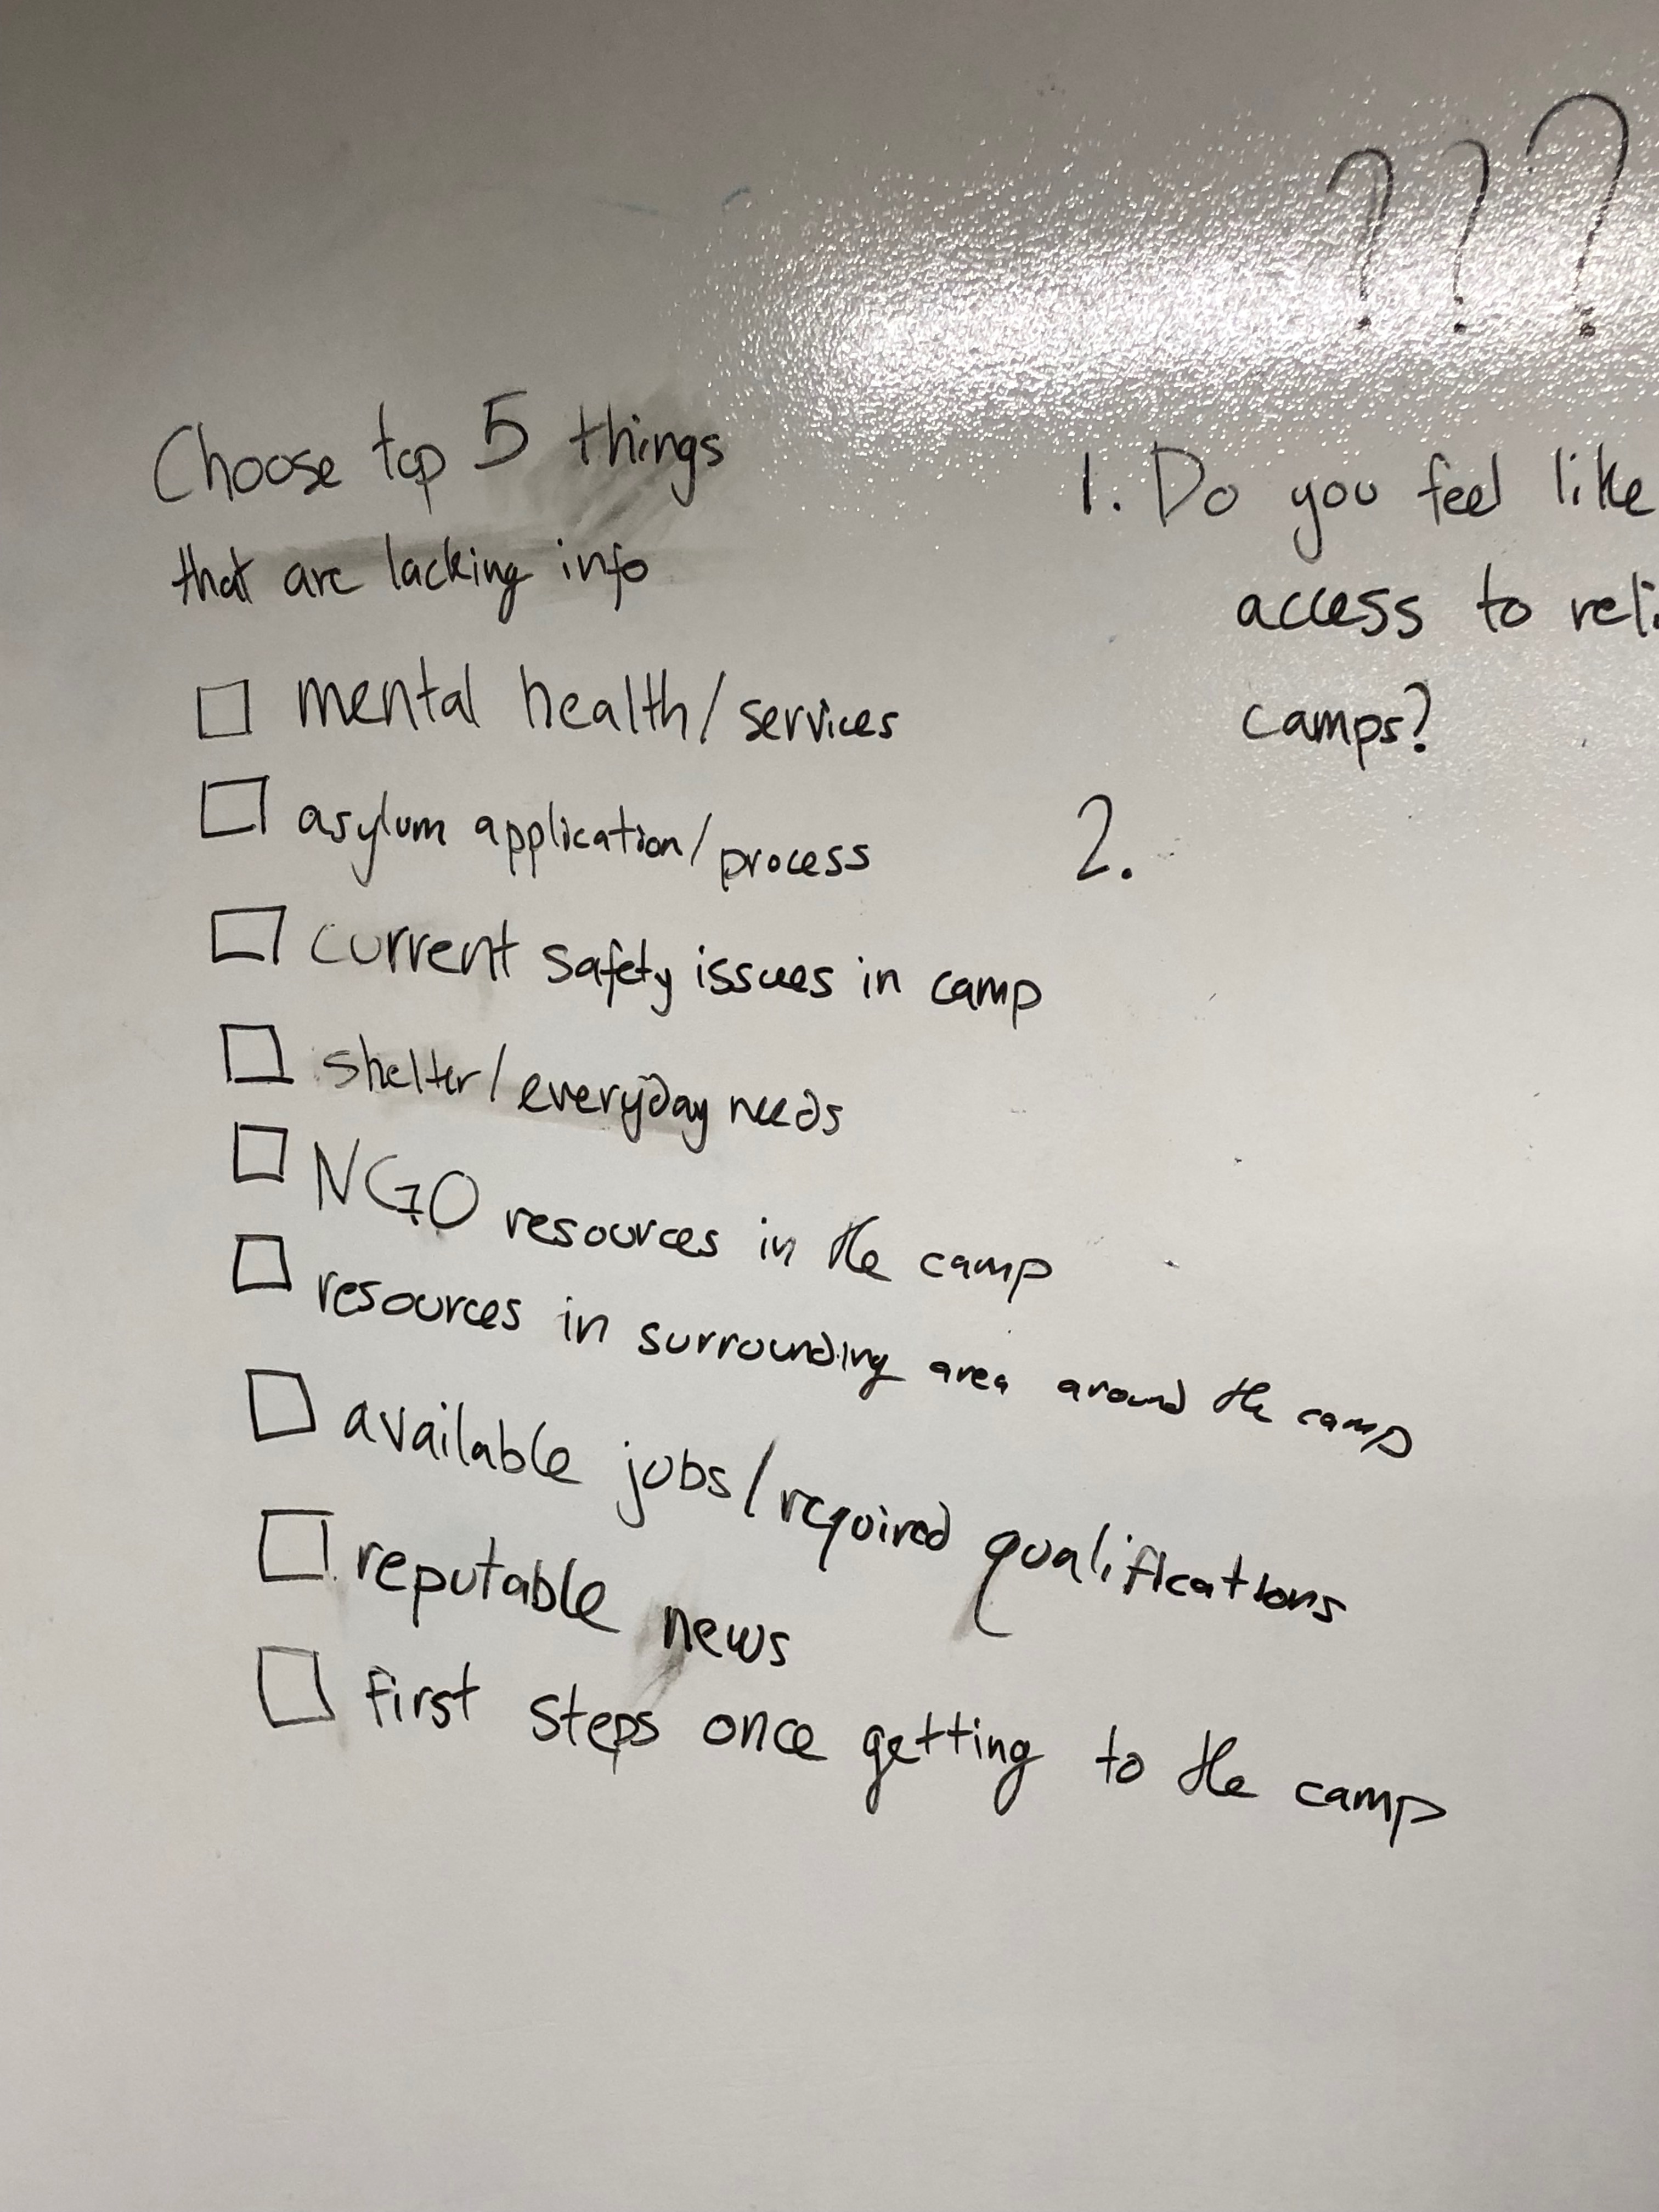 ???
Choose top 5 things
that are lacking info
☐ mental health/services
☐ asylum application/process
☐ current safety issues in camp
☐ shelter/everyday needs
☐ NGO resources in the camp
☐ resources in surrounding area around the camp
☐ available jobs/required qualifications
☐ reputable news
☐ first steps once getting to the camp
1. Do you feel like
access to
camps?
2.